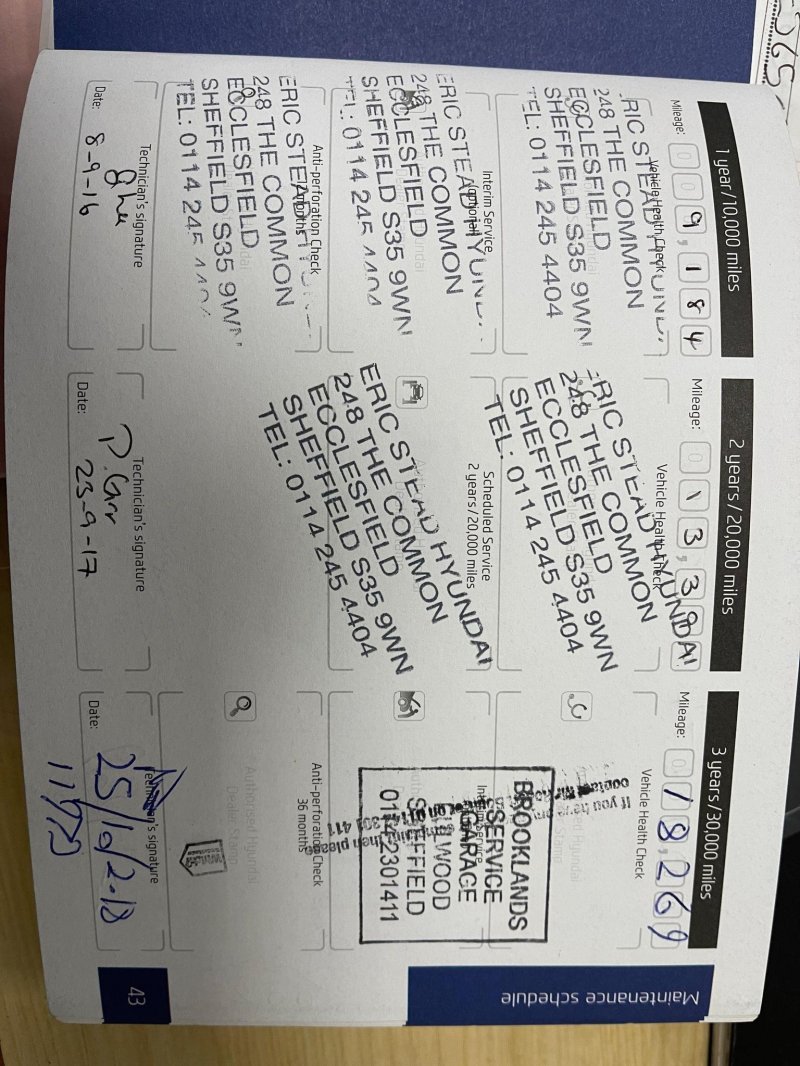 1 year/10,000 miles
Mileage: 0 0 9,1 8 4
Vehicle Health Check
ERIC STEAD HYUNDAI
248 THE COMMON
ECCLESFIELD
SHEFFIELD S35 9WN
TEL: 0114 245 4404
Interim Service
(optional)
ERIC STEAD HYUNDAI
248 THE COMMON
ECCLESFIELD
SHEFFIELD S35 9WN
TEL: 0114 245 4404
Anti-perforation Check
months
ERIC STEAD HYUNDAI
248 THE COMMON
ECCLESFIELD
SHEFFIELD S35 9WN
TEL: 0114 245 4404
Technician's signature
Date: 8-9-16
2 years/20,000 miles
Mileage: 0 1 3,3
Vehicle Health Check
ERIC STEAD HYUNDAI
248 THE COMMON
ECCLESFIELD
SHEFFIELD S35 9WN
TEL: 0114 245 4404
Scheduled Service
2 years/20,000 miles
ERIC STEAD HYUNDAI
248 THE COMMON
ECCLESFIELD
SHEFFIELD S35 9WN
TEL: 0114 245 4404
Technician's signature
Date: 23-9-17
3 years/30,000 miles
Mileage: 0 1 8,2 6 9
Vehicle Health Check
If you have any
contact
BROOKLANDS
SERVICE
GARAGE
SHEFFIELD
01142301411
then please
Anti-perforation Check
36 months
Authorised Hyundai
Dealer Stamp
Technician's signature
Date: 25/10/2018
Maintenance schedule
43
565-